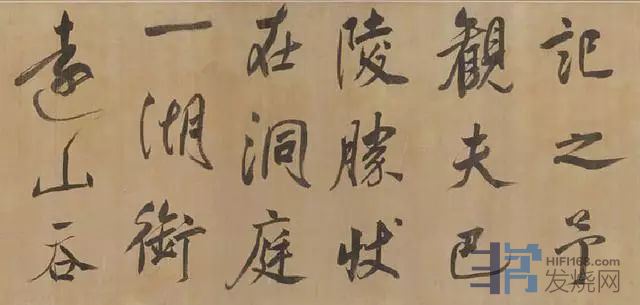 記之予
観夫巴
陵勝状
在洞庭
一湖銜
遠山吞
HIFI168.com
发烧网